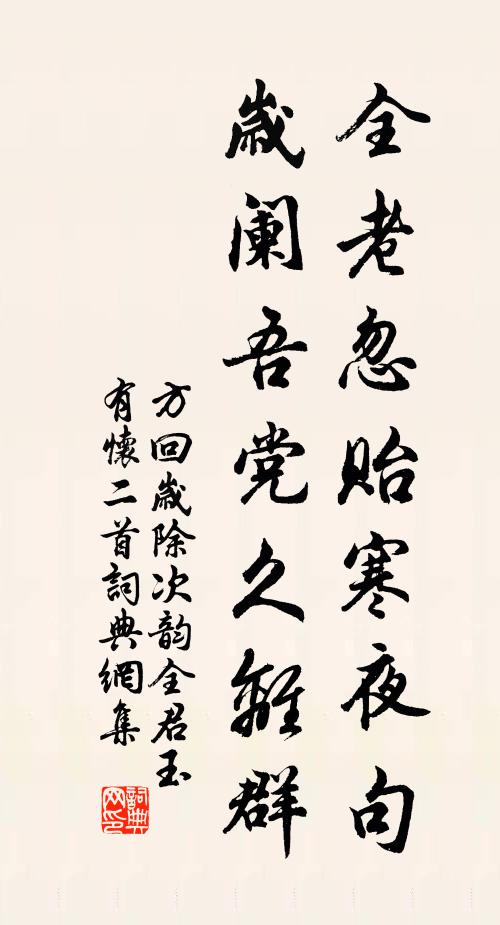 全老忽贻寒夜句
歳阑吾党久離群
方回歳除次韵全君玉
有懷二首詞典網集
詞典网印